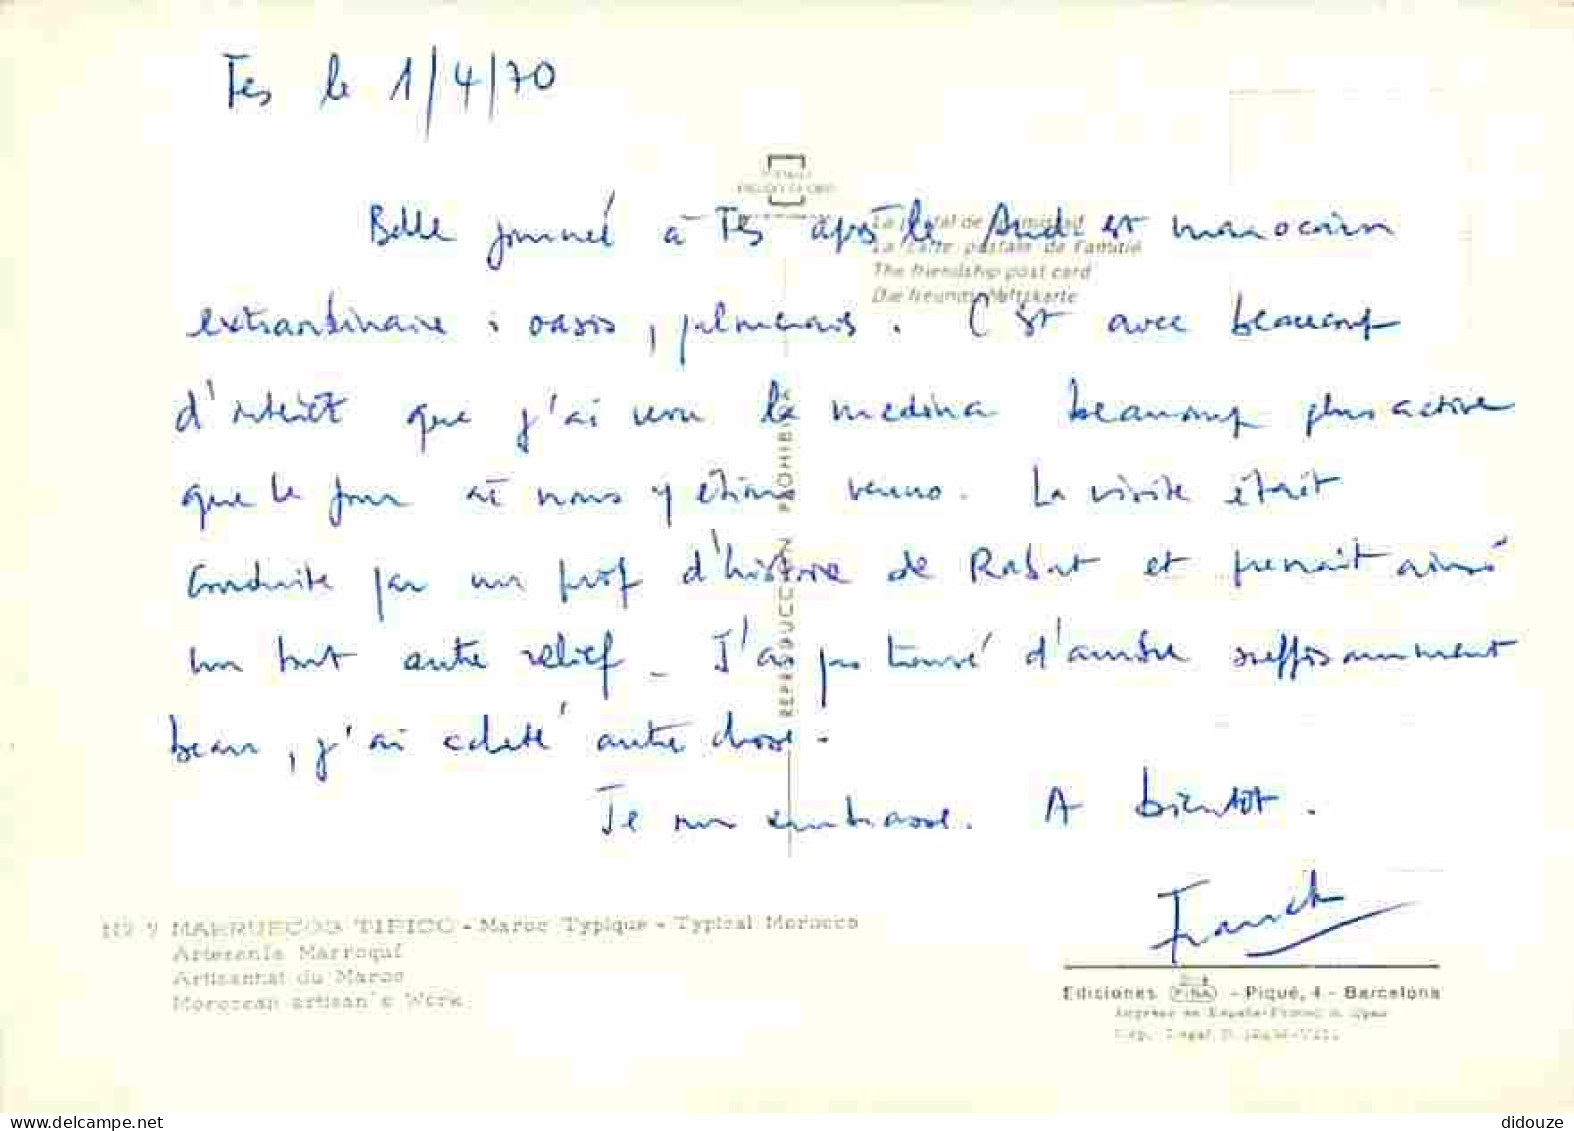 Fes le 1/4/70
Belle journée à Fès après le Sud est marocain
extraordinaire : oasis, palmeraies. C'est avec beaucoup
d'intérêt que j'ai revu la medina beaucoup plus active
que le jour où nous y étions venus. La visite était
conduite par un prof d'histoire de Rabat et prenait ainsi
un tout autre relief - J'ai pas trouvé d'ambre suffisamment
beau, j'ai acheté autre chose.
Je vous embrasse. A bientôt.
Franck
La postal de la amistad
La carte postale de l'amitié
The friendship post card
Die freundschaftskarte
REPRODUCCION PROHIBIDA
MARRUECOS TIPICO - Maroc Typique - Typical Morocco
Artesanía Marroquí
Artisanat du Maroc
Moroccan artisan's Work
Ediciones FISA - Piqué, 4 - Barcelona
didouze